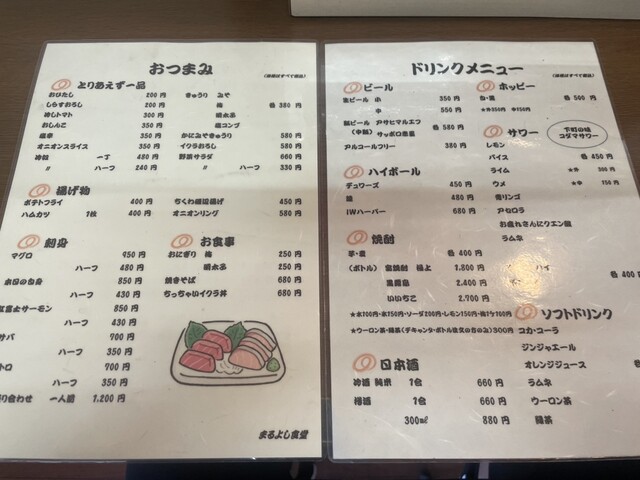 おつまみ
(価格はすべて税込)
とりあえず一品
おひたし 200 円
しらすおろし 200 円
冷しトマト 300 円
おしんこ 350 円
350 円
オニオンスライス 350 円
冷奴 一丁 480 円
〃 ハーフ 240 円
きゅうり みそ
梅 各 380 円
かにみそきゅうり 580 円
イクラおろし 580 円
野菜サラダ 660 円
〃 ハーフ 330 円
揚げ物
ポテトフライ 400 円
ハムカツ 1枚 400 円
ちくわ磯辺揚げ 450 円
オニオンリング 580 円
刺身
マグロ 950 円
ハーフ 480 円
本日の白身 850 円
ハーフ 430 円
サーモン 850 円
ハーフ 430 円
サバ 700 円
ハーフ 350 円
トロ 700 円
ハーフ 350 円
り合わせ 一人前 1,200 円
お食事
おにぎり 梅 250 円
明太子 250 円
焼きそば 680 円
ちっちゃいイクラ丼 680 円
まるよし食堂
ドリンクメニュー
(価格はすべて税込)
ビール
生ビール 小 350 円
中 550 円
瓶ビール アサヒマルエフ
(中瓶) サッポロ黒星 各 580 円
アルコールフリー 380 円
ハイボール
デュワーズ 450 円
480 円
IWハーパー 680 円
焼酎
芋・麦 各 400 円
(ボトル) 宝焼酎 極上 1,800 円
黒霧島 2,400 円
いいちこ 2,700 円
★氷100円・水150円・ソーダ200円・レモン150円・梅1ケ100円
★ウーロン茶・緑茶(デキャンタ・ボトル注文の方のみ)300円
日本酒
冷酒 純米 1合 660 円
樽酒 1合 660 円
300㎖ 880 円
ホッピー
白・黒 各 500 円
サワー
下町の味
コダマサワー
レモン
バイス 各 450 円
ライム
ウメ
青リンゴ
アセロラ
お疲れさんにクエン酸
ラムネ
ハイ
各 400 円
ソフトドリンク
コカ・コーラ
ジンジャエール
オレンジジュース
ラムネ
ウーロン茶
緑茶